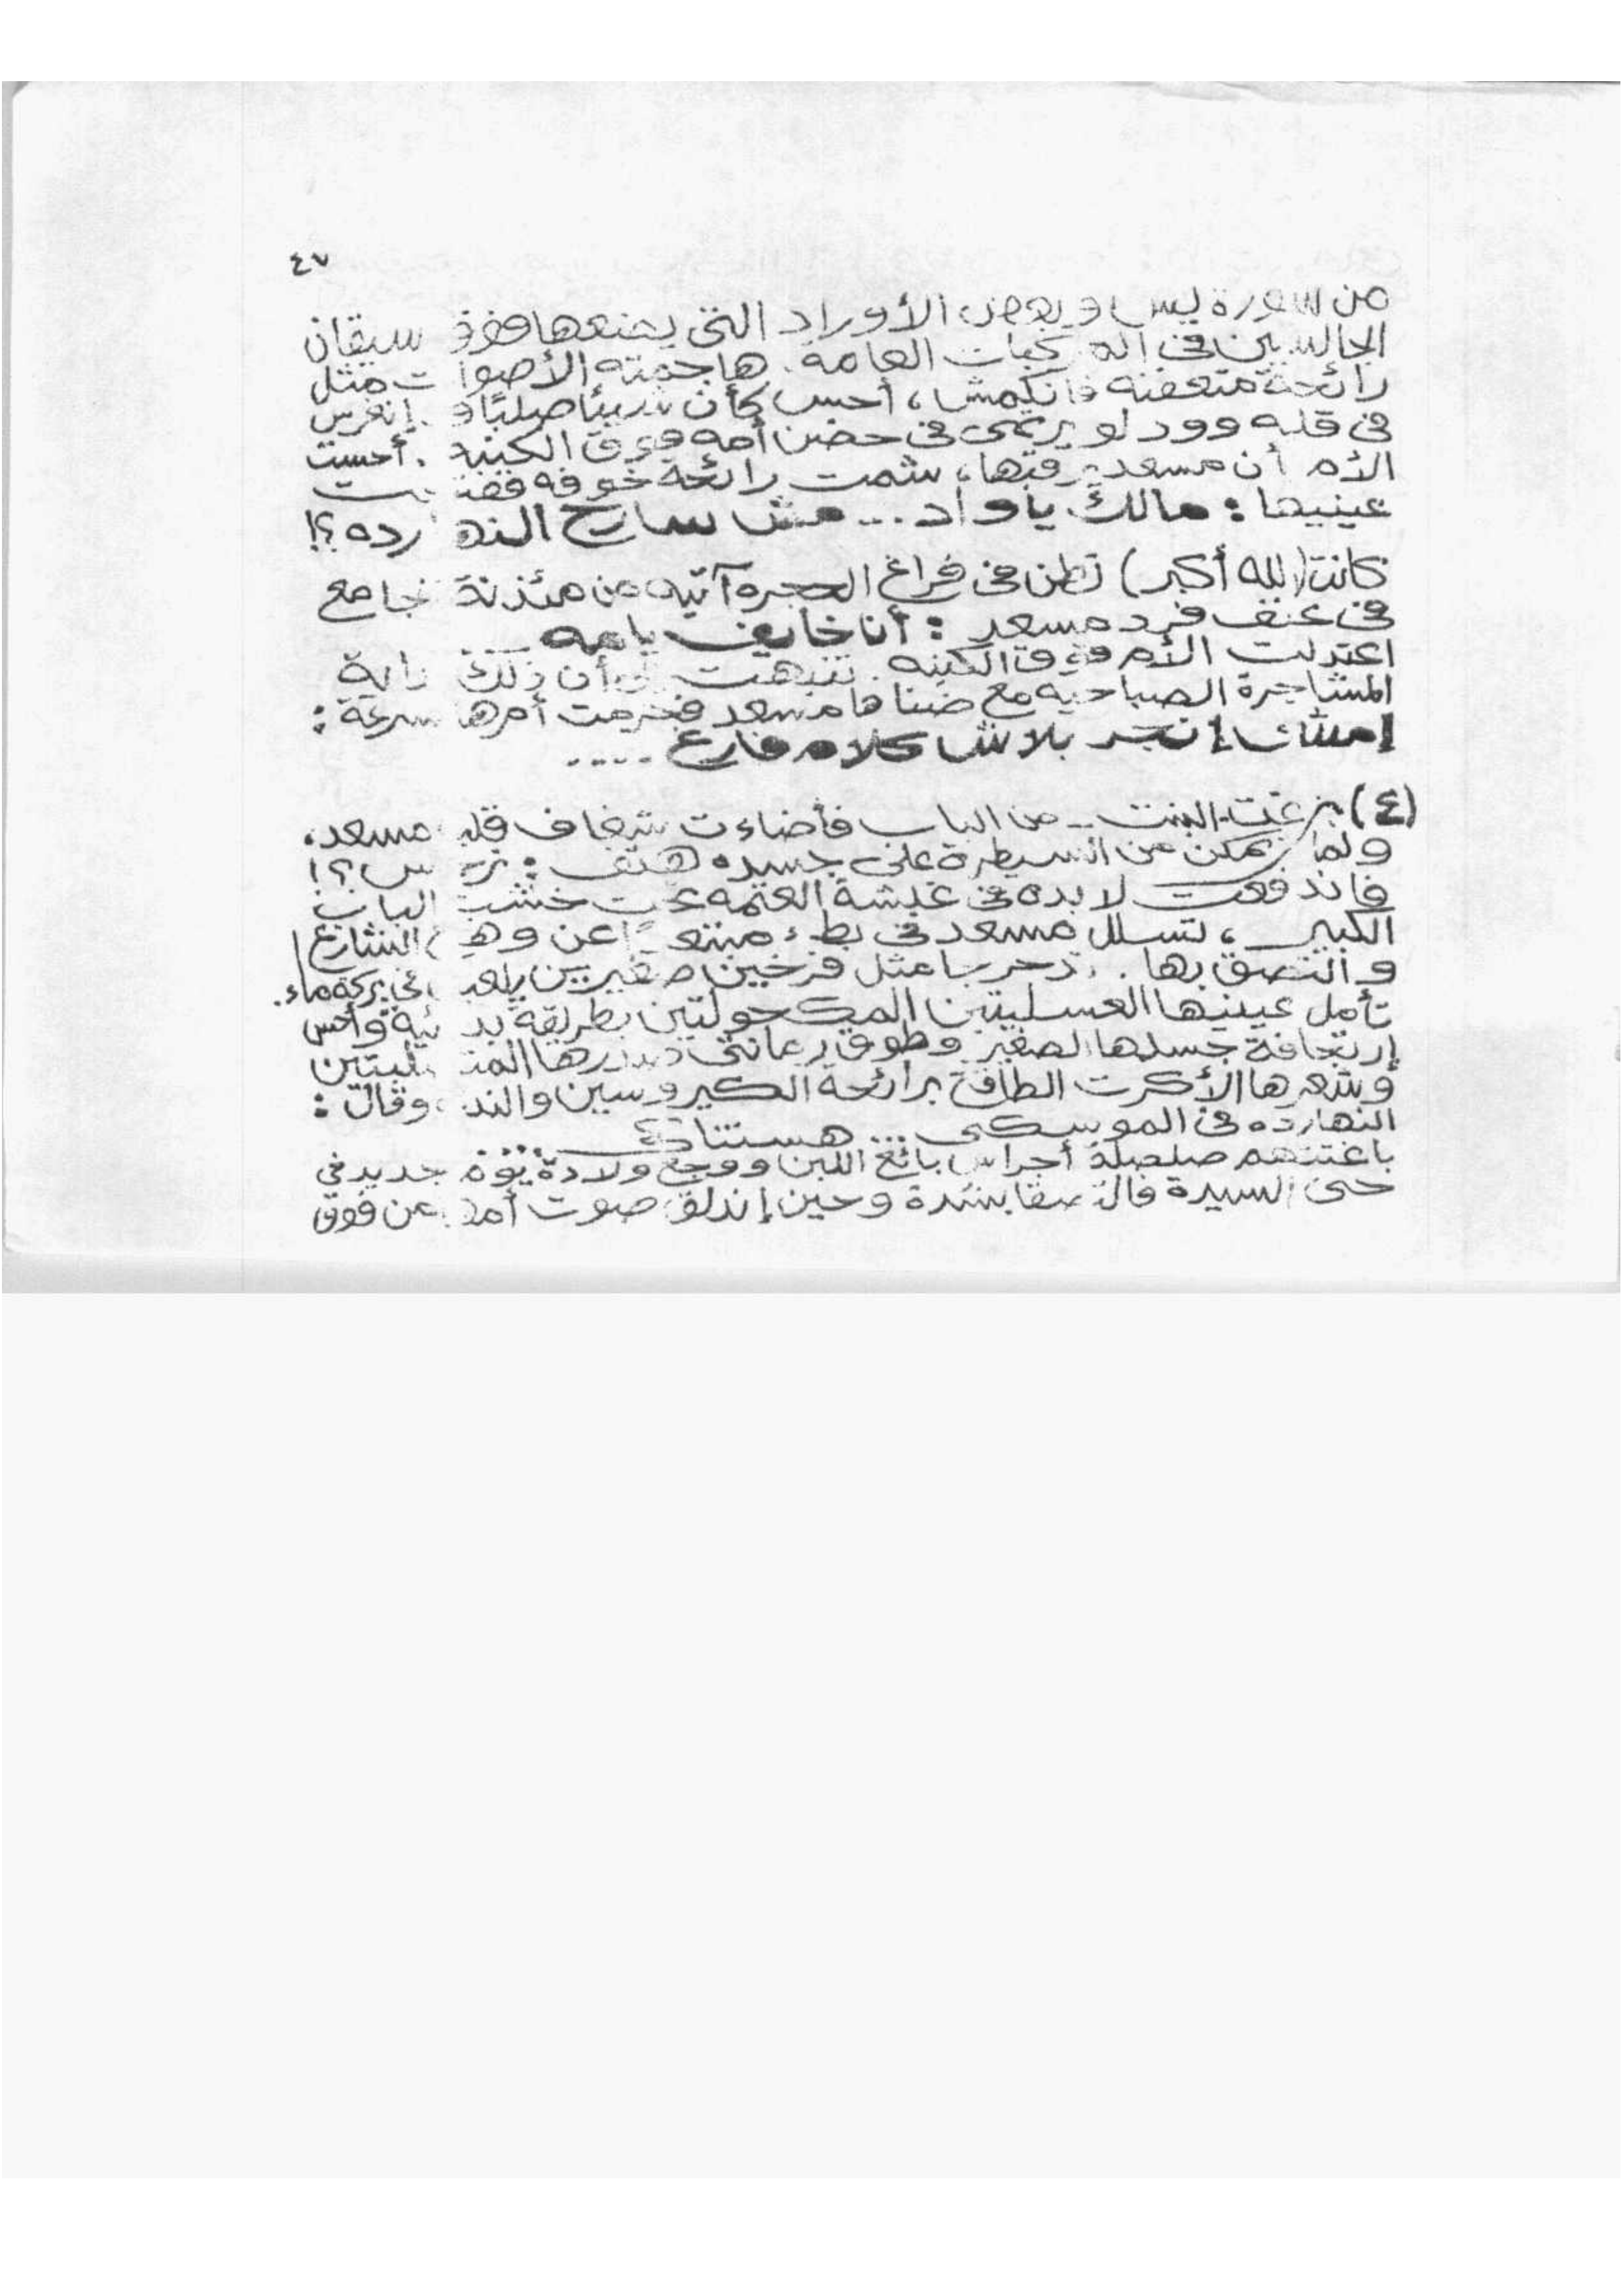 ٤٧
من سورة يس وبعض الأوراد التى يضعها فوق سيقان
الجالسين فى المركبات العامة. هاجمته الأصوات مثل
رائحة متعفنه فانكمش، أحس كأن شيئا صلبًا إنغرس
فى قلبه وود لو يرتمى فى حضن أمه فوق الكنبه. أحست
الأم أن مسعد يرقبها، شمت رائحة خوفه ففتحت
عينيها: مالك ياواد... مش سارح النهارده؟!
كانت (الله أكبر) تطن فى فراغ الحجره آتيه من مئذنة جامع
فى عنف فرد مسعد: أنا خايف يامه ....
اعتدلت الأم فوق الكنبه. تنبهت أن ذلك بداية
المشاجرة الصباحيه مع ضناها مسعد فحزمت أمرها بسرعة:
إمش إنجر بلاش كلام فارغ .....
(٤) بزغت البنت .. من الباب فأضاءت شغاف قلب مسعد،
ولما تمكن من السيطرة على جسده هتف: ؟!
فاندفعت لابده فى غبشة العتمه تحت خشب الباب
الكبير، تسلل مسعد فى بطء مبتعدًا عن وهج الشارع
والتصق بها. تدحرجا مثل فرخين صغيرين يلعبان فى بركة ماء.
تأمل عينيها العسليتين المكحولتين بطريقة بدائية وأحس
إرتجافة جسدها الصغير وطوق رمانتى صدرها
وشعرها الأكرت الطافح برائحة الكيروسين والندى وقال:
النهارده فى الموسكى ... هستناكى ....
باغتتهم صلصلة أجراس بائع اللبن ووجع ولادة يوم جديد فى
حى السيدة فالتصقا بشدة وحين إندلق صوت أمها من فوق